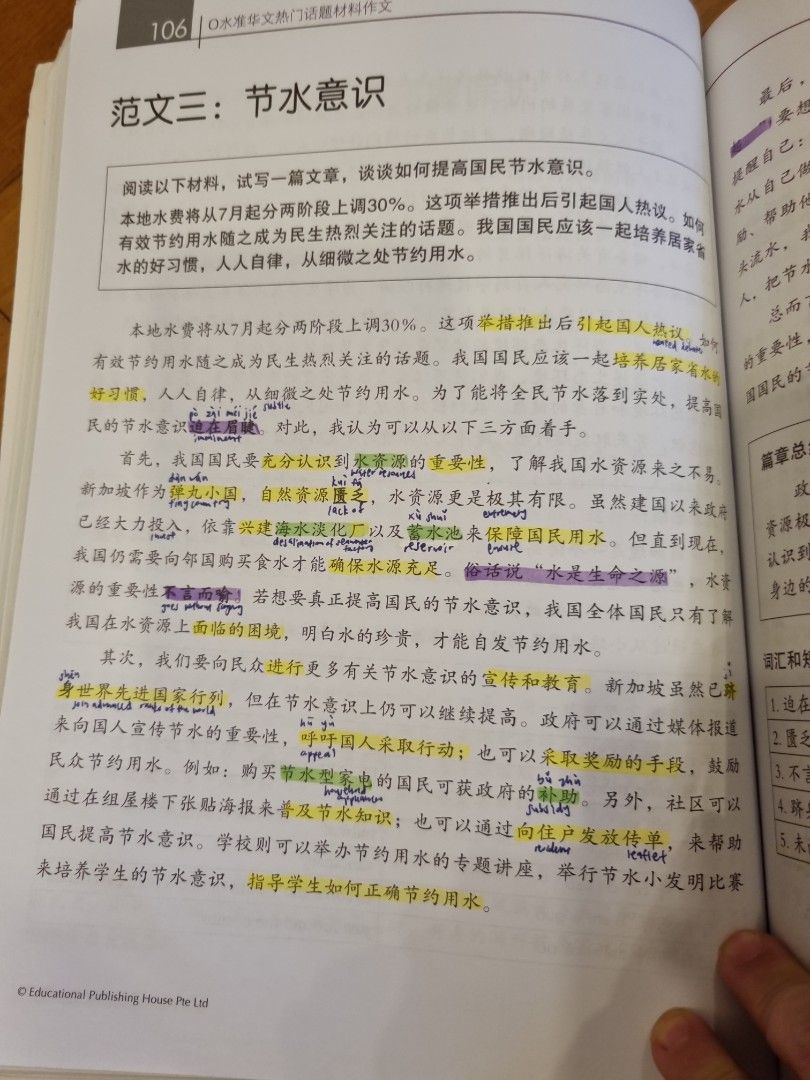 106
O水准华文热门话题材料作文
范文三：节水意识
阅读以下材料，试写一篇文章，谈谈如何提高国民节水意识。
本地水费将从7月起分两阶段上调30%。这项举措推出后引起国人热议。如何
有效节约用水随之成为民生热烈关注的话题。我国国民应该一起培养居家省
水的好习惯，人人自律，从细微之处节约用水。
本地水费将从7月起分两阶段上调30%。这项举措推出后引起国人热议。如何
有效节约用水随之成为民生热烈关注的话题。我国国民应该一起培养居家省水的
好习惯，人人自律，从细微之处节约用水。为了能将全民节水落到实处，提高国
subtle
pò zài méi jié
民的节水意识迫在眉睫。对此，我认为可以从以下三方面着手。
imminent
首先，我国国民要充分认识到水资源的重要性，了解我国水资源来之不易。
water resources
dàn wán
kuì fá
新加坡作为弹丸小国，自然资源匮乏，水资源更是极其有限。虽然建国以来政府
tiny country
lack of
extremely
xù shuǐ
已经大力投入，依靠兴建海水淡化厂以及蓄水池来保障国民用水。但直到现在，
invest
desalination of seawater
reservoir
ensure
我国仍需要向邻国购买食水才能确保水源充足。俗话说“水是生命之源”，水资
源的重要性不言而喻！若想要真正提高国民的节水意识，我国全体国民只有了解
goes without saying
我国在水资源上面临的困境，明白水的珍贵，才能自发节约用水。
其次，我们要向民众进行更多有关节水意识的宣传和教育。新加坡虽然已跻
jī
shēn
身世界先进国家行列，但在节水意识上仍可以继续提高。政府可以通过媒体报道
join advanced ranks of the world
hū yù
来向国人宣传节水的重要性，呼吁国人采取行动；也可以采取奖励的手段，鼓励
appeal
bǔ zhù
民众节约用水。例如：购买节水型家电的国民可获政府的补助。另外，社区可以
household appliances
subsidy
通过在组屋楼下张贴海报来普及节水知识；也可以通过向住户发放传单，来帮助
residents
leaflet
国民提高节水意识。学校则可以举办节约用水的专题讲座，举行节水小发明比赛
来培养学生的节水意识，指导学生如何正确节约用水。
© Educational Publishing House Pte Ltd
最后，
要想
提醒自己：
水从自己做
励、帮助他
头流水，我
人，把节水
总而言
的重要性，
国国民的节
篇章总结
政
资源极
认识到
身边的
词汇和知
1. 迫在
2. 匮乏
3. 不言
4. 跻身
5. 未